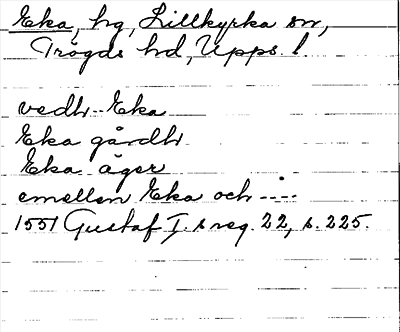 Eka, hg, Lillkyrka sn,
Trögds hd, Upps. l.
vedh Eka
Eka gårdh
Eka äger
emellen Eka och ----
1551 Gustaf I. s reg. 22, s. 225.